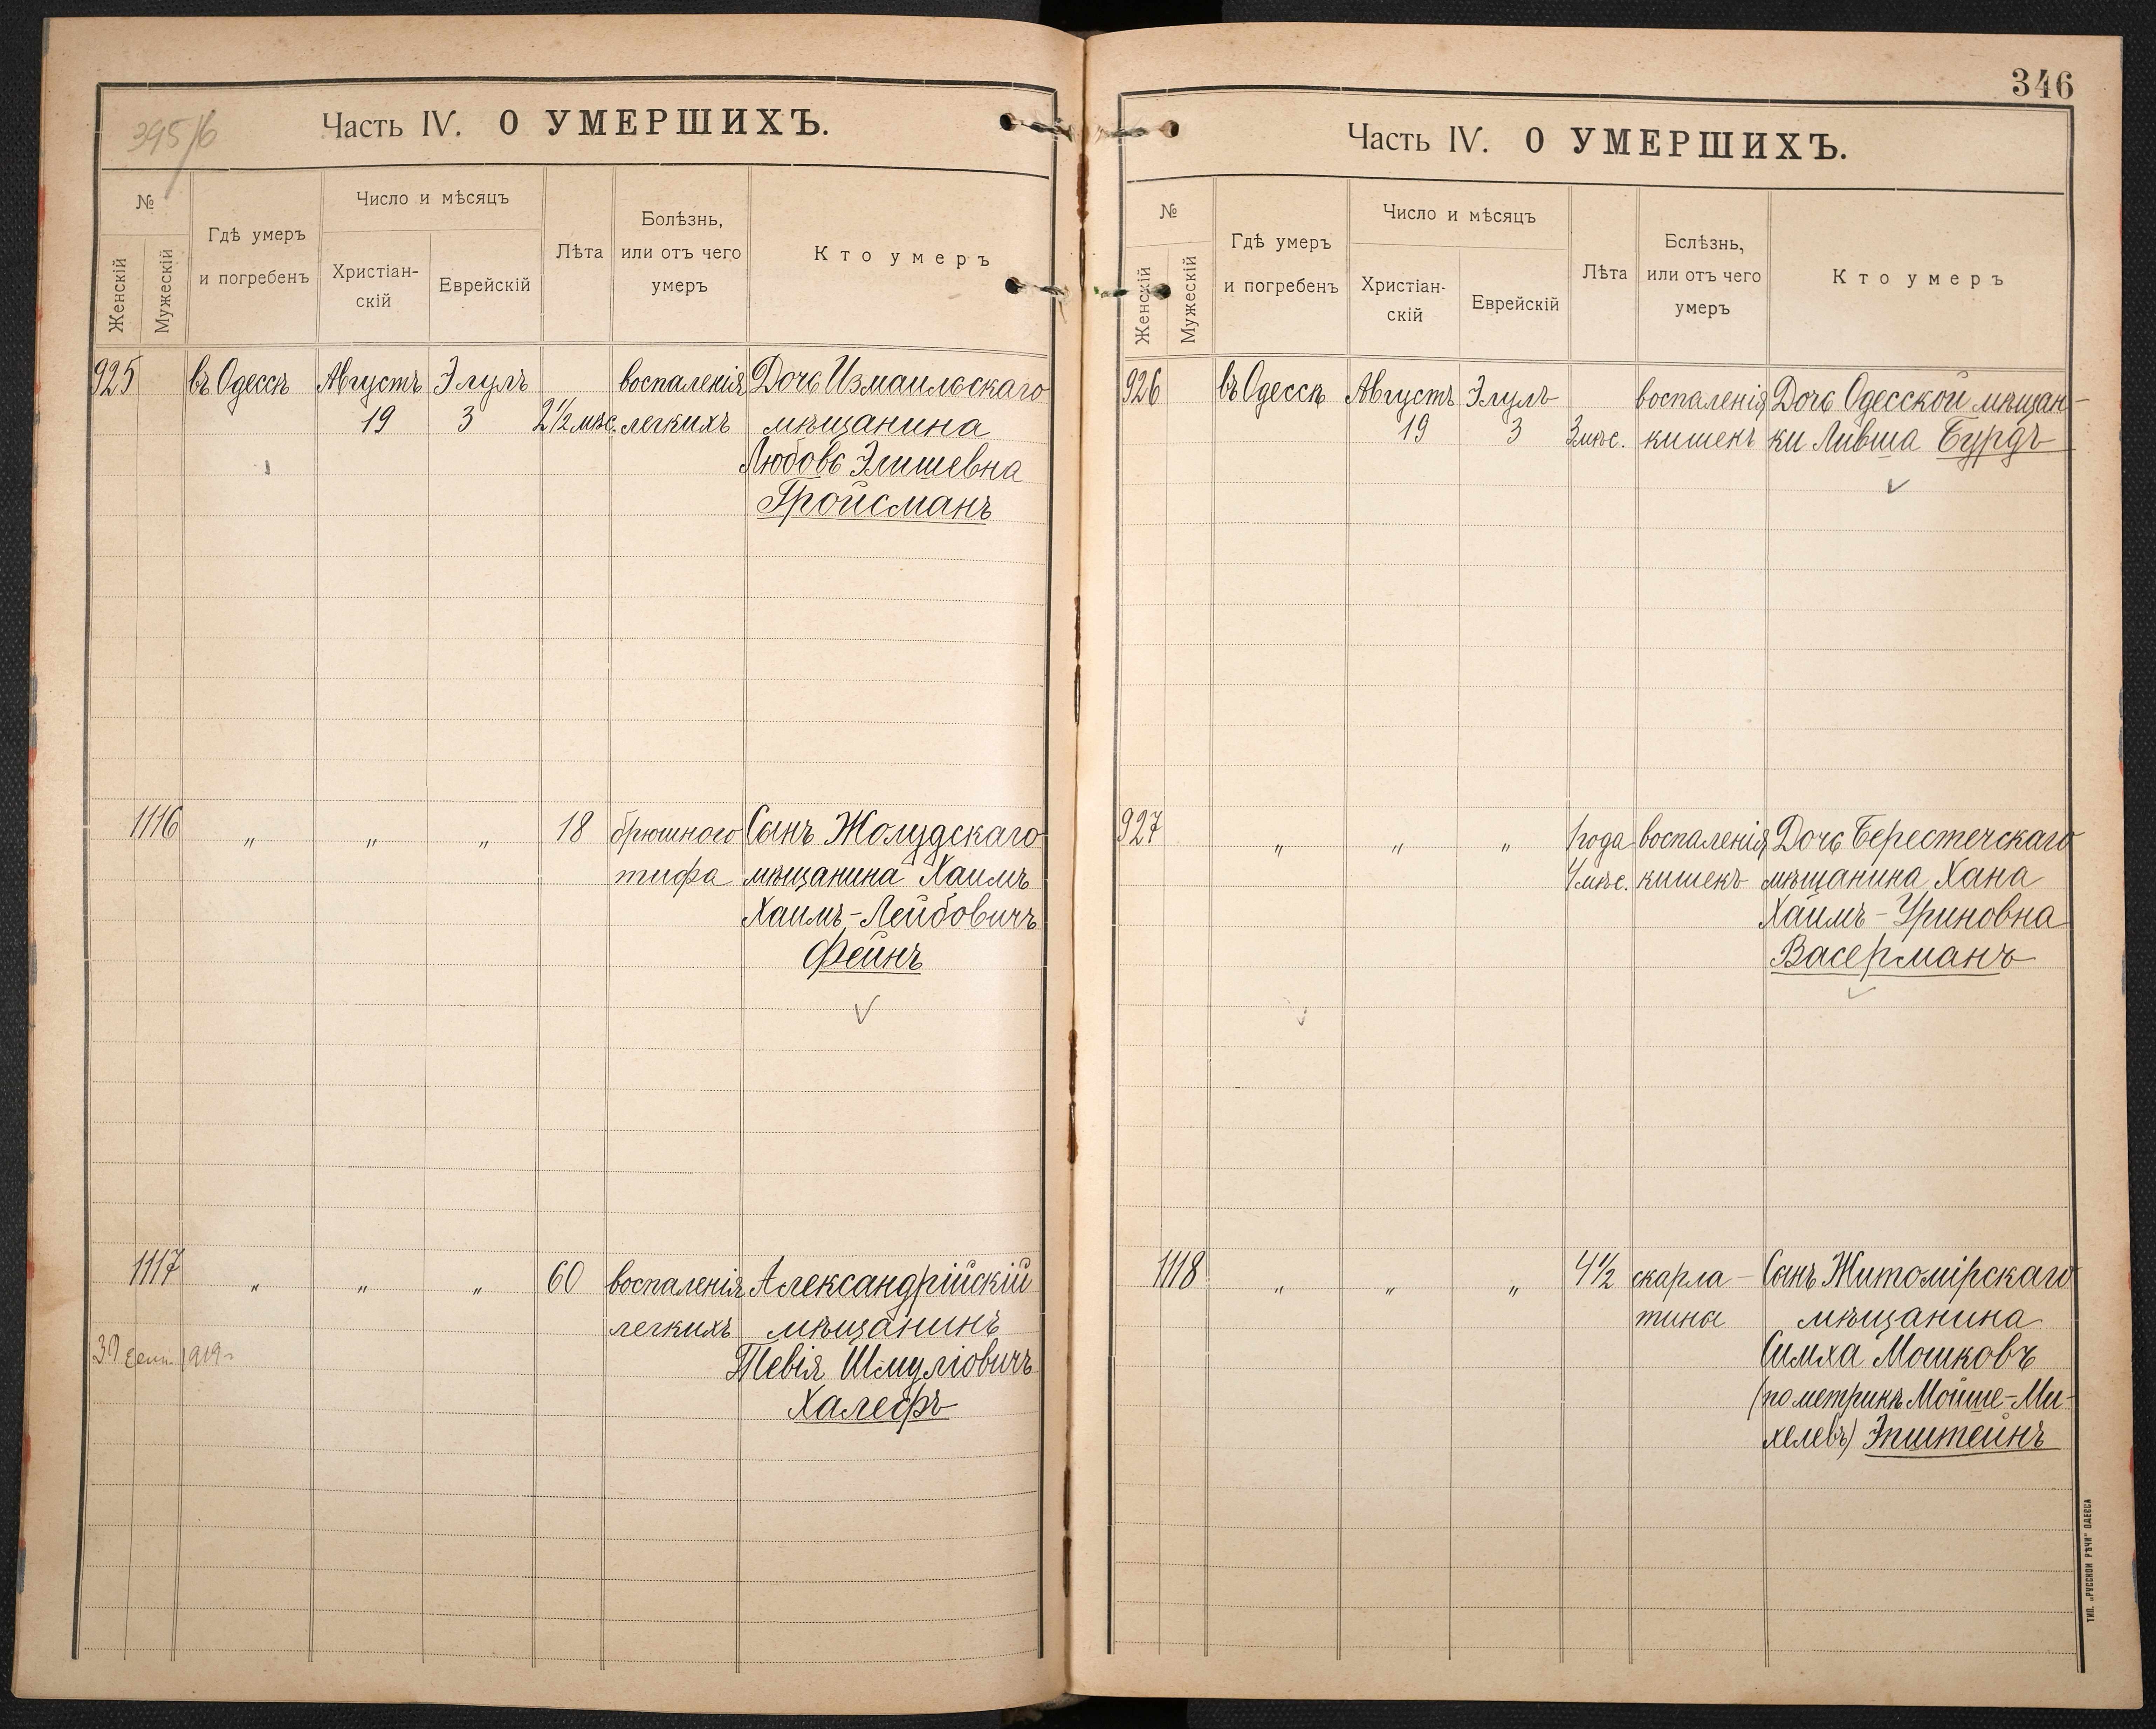 395/6
Часть IV. О УМЕРШИХЪ.
№
Женскій
Мужескій
Гдѣ умеръ
и погребенъ
Число и мѣсяцъ
Христіан-
скій
Еврейскій
Лѣта
Болѣзнь,
или отъ чего
умеръ
Кто умеръ
925 въ Одессѣ Августъ Элулъ воспаленія Дочь Измаильскаго
19 3 2½ мѣс. легкихъ мѣщанина
Любовь Элишевна
Гройсманъ
1116 „ „ „ 18 брюшного Сынъ Жолудскаго
тифа мѣщанина Хаимъ
Хаимъ-Лейбовичъ
Фейнъ
1117 „ „ „ 60 воспаленія Александрійскій
легкихъ мѣщанинъ
30 1919
Тевія Шмуліовичъ
Халефъ
346
Часть IV. О УМЕРШИХЪ.
№
Женскій
Мужескій
Гдѣ умеръ
и погребенъ
Число и мѣсяцъ
Христіан-
скій
Еврейскій
Лѣта
Бслѣзнь,
или отъ чего
умеръ
Кто умеръ
926 въ Одессѣ Августъ Элулъ воспаленія Дочь Одесской мѣщан-
19 3 3 мѣс. кишекъ ки Лившa Бурдъ
927 „ „ „ 1 года воспаленія Дочь Берестечскаго
мѣс. кишекъ мѣщанина Хана
Хаимъ-Уриновна
Васерманъ
1118 „ „ „ 4½ скарла- Сынъ Житомірскаго
тины мѣщанина
Симха Мошковъ
(по метрикѣ Мойше-Ми-
хелевъ) Эпштейнъ
ТИП. „РУССКОЙ РѢЧИ" ОДЕССА